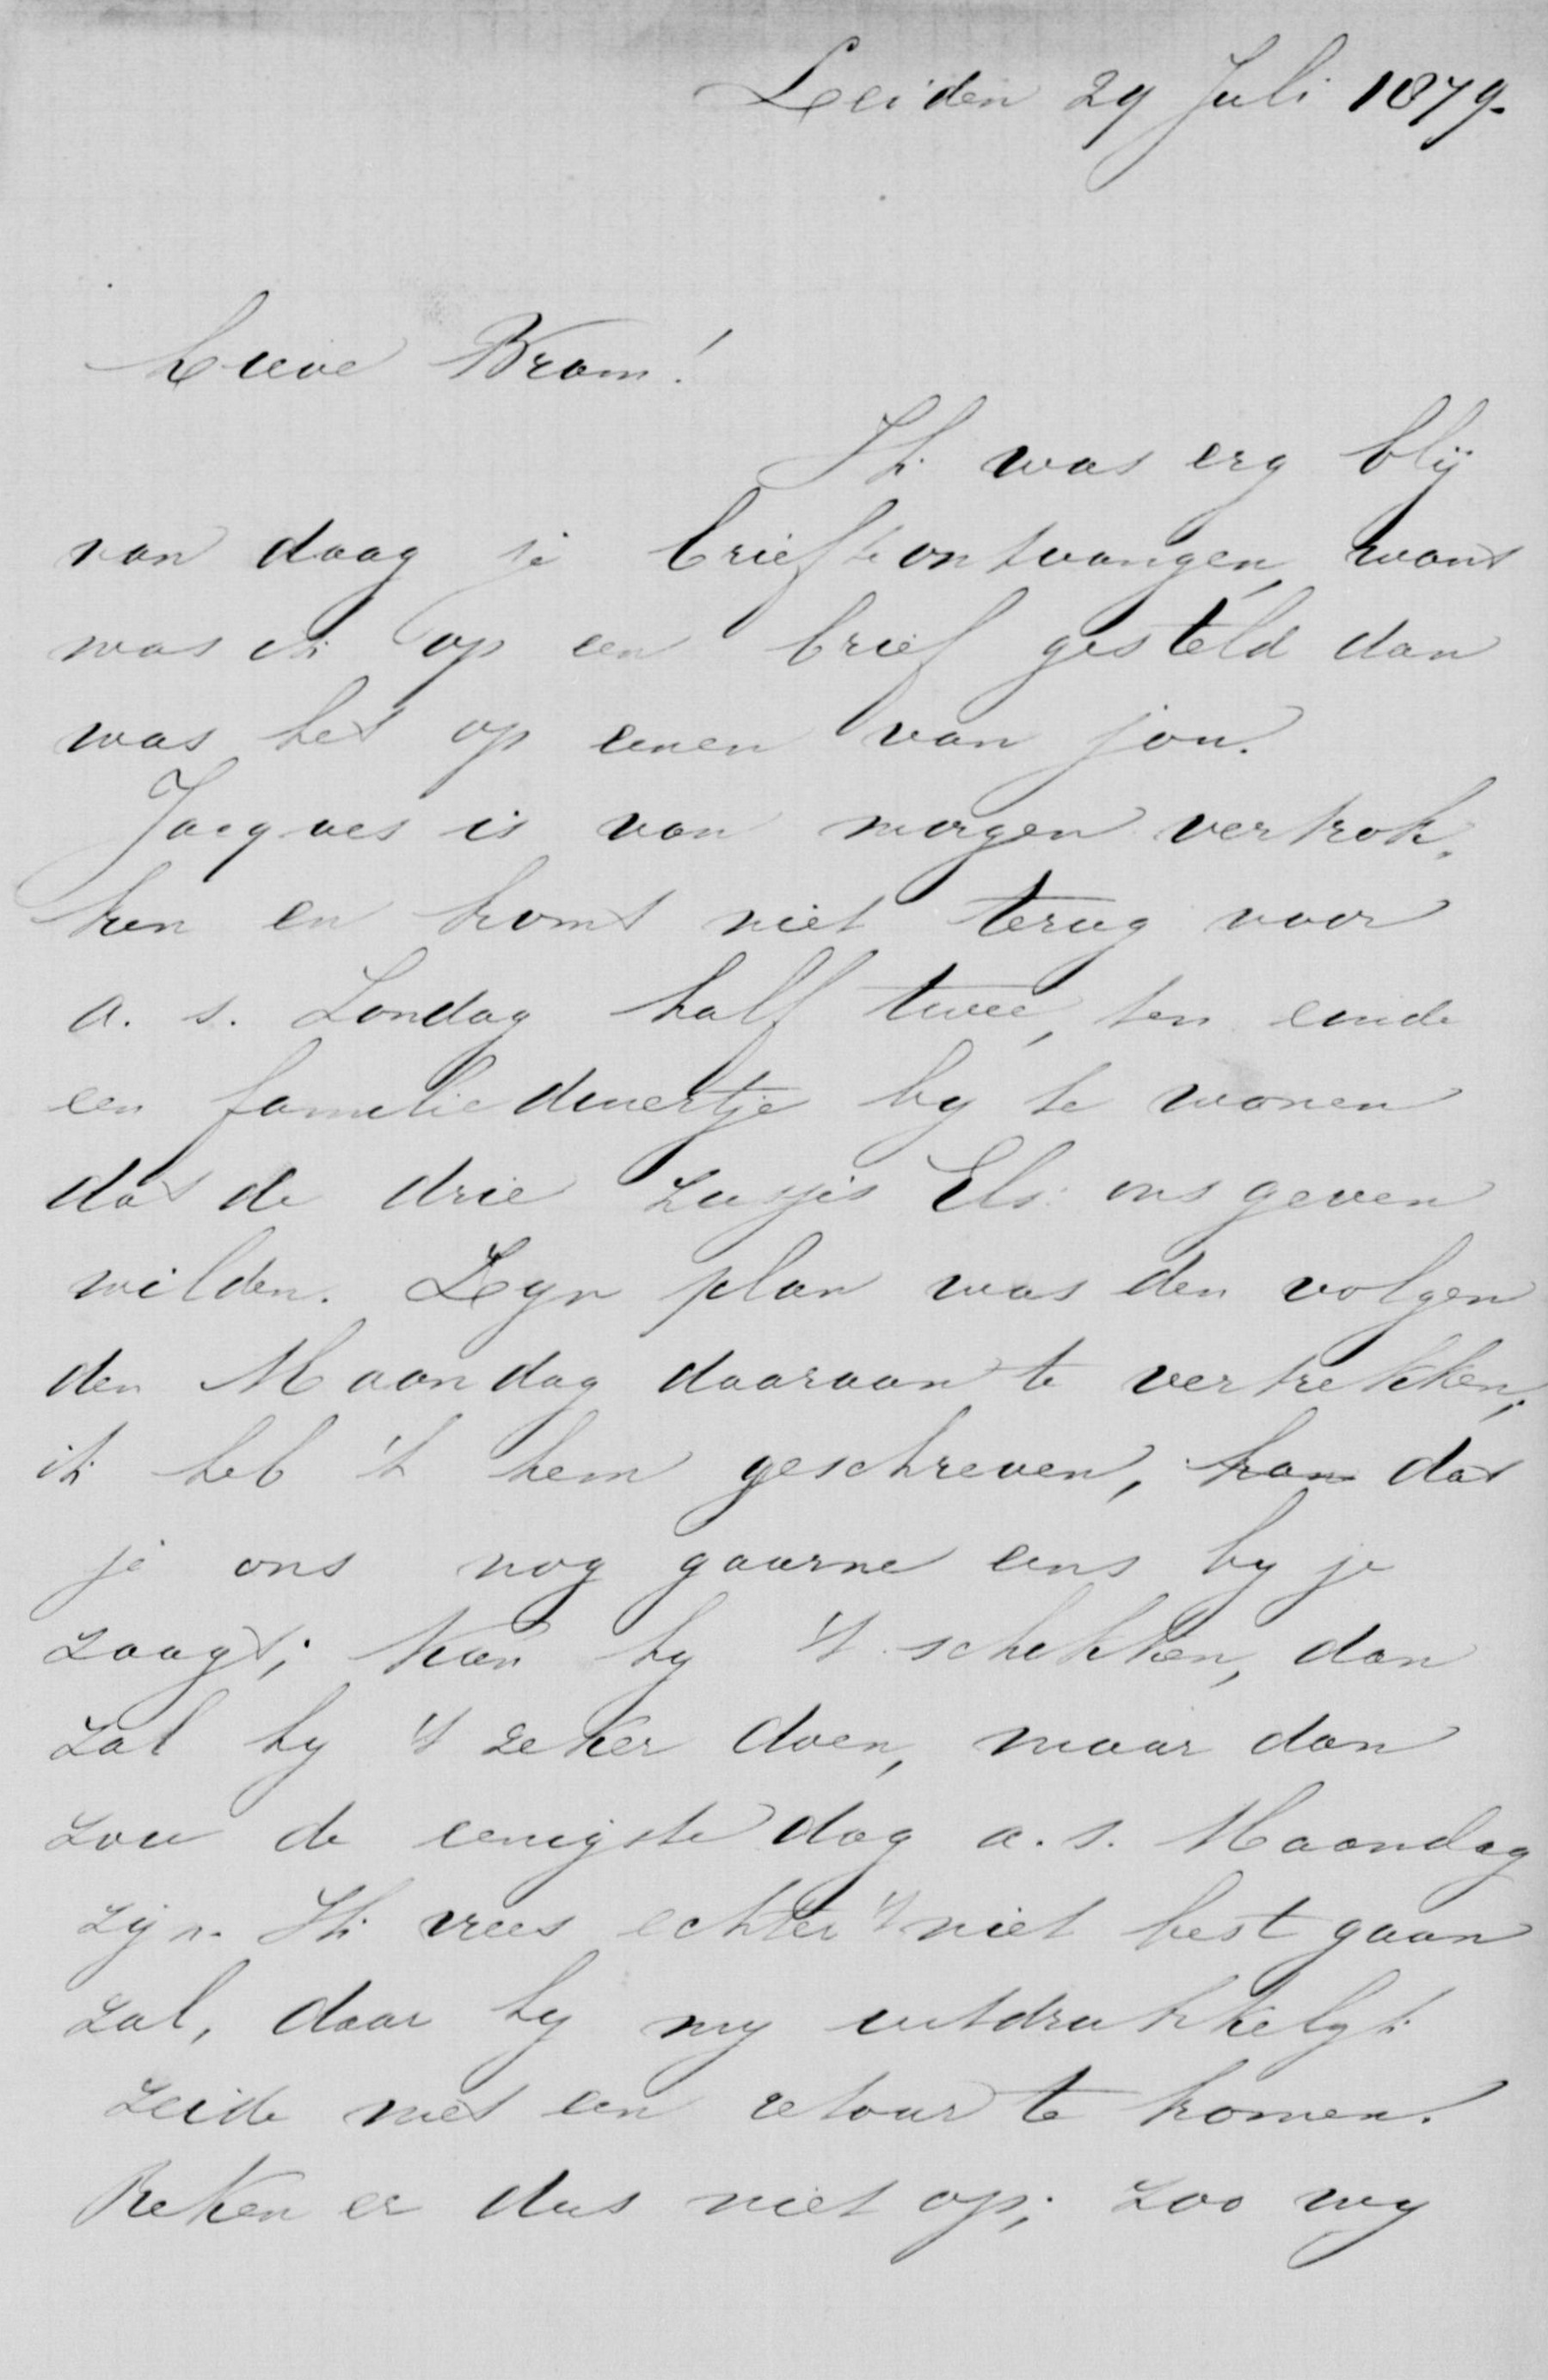 Leiden 29 Juli 1879.
Lieve Bram!
Ik was erg blij
van daag je brief te ontvangen, want
was ik op een brief gesteld dan
was het op eenen van jou.
Jacques is van morgen vertrok-
ken en komt niet terug voor
a. s. Zondag half twee, ten einde
een familie dinertje by te wonen
dat de drie zusjes Els ons geven
wilden. Zyn plan was den volgen
den Maandag daaraan te vertrekken;
ik heb 't hem geschreven, kan dat
je ons nog gaarne eens by je
zaagt; kan hy 't schikken, dan
zal hy 't zeker doen, maar dan
zou de eenigste dag a. s. Maandag
zijn. Ik vrees echter 't niet best gaan
zal, daar hy my uitdrukkelyk
zeide met een retour te komen.
Reken er dus niet op; zoo wy